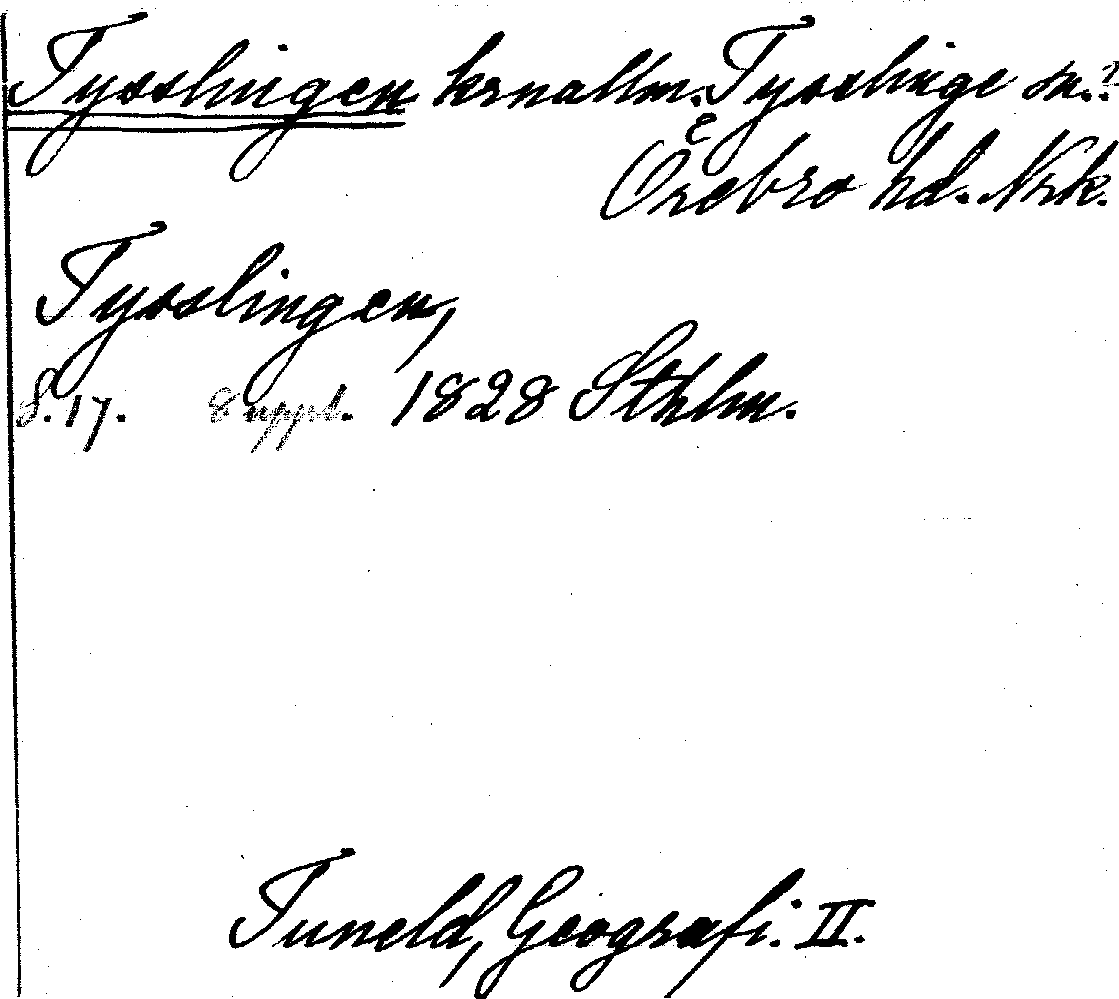 Tysslingen krnallm. Tysslinge sn.?
Örebro hd. Nrk.
Tysslingen,
S. 17. 8 uppl. 1828 Sthlm.
Tuneld, Geografi. II.